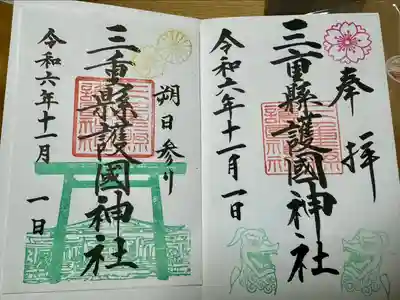 奉拝
三重縣護國神社
令和六年十一月一日
朔日参り
三重縣護國神社
令和六年十一月
一日